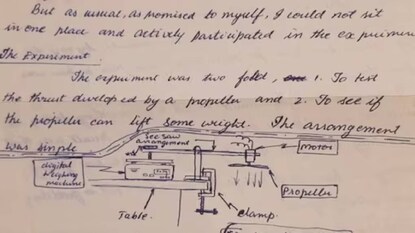 But as usual, as promised to myself, I could not sit
in one place and actively participated in the experime
The Experiment
The experiment was two fold, 1. To test
the thrust developed by a propeller and 2. To see if
the propeller can lift some weight. The arrangement
was simple
see saw
arrangement
motor
digital
weighing
machine
Propeller
Table.
clamp.